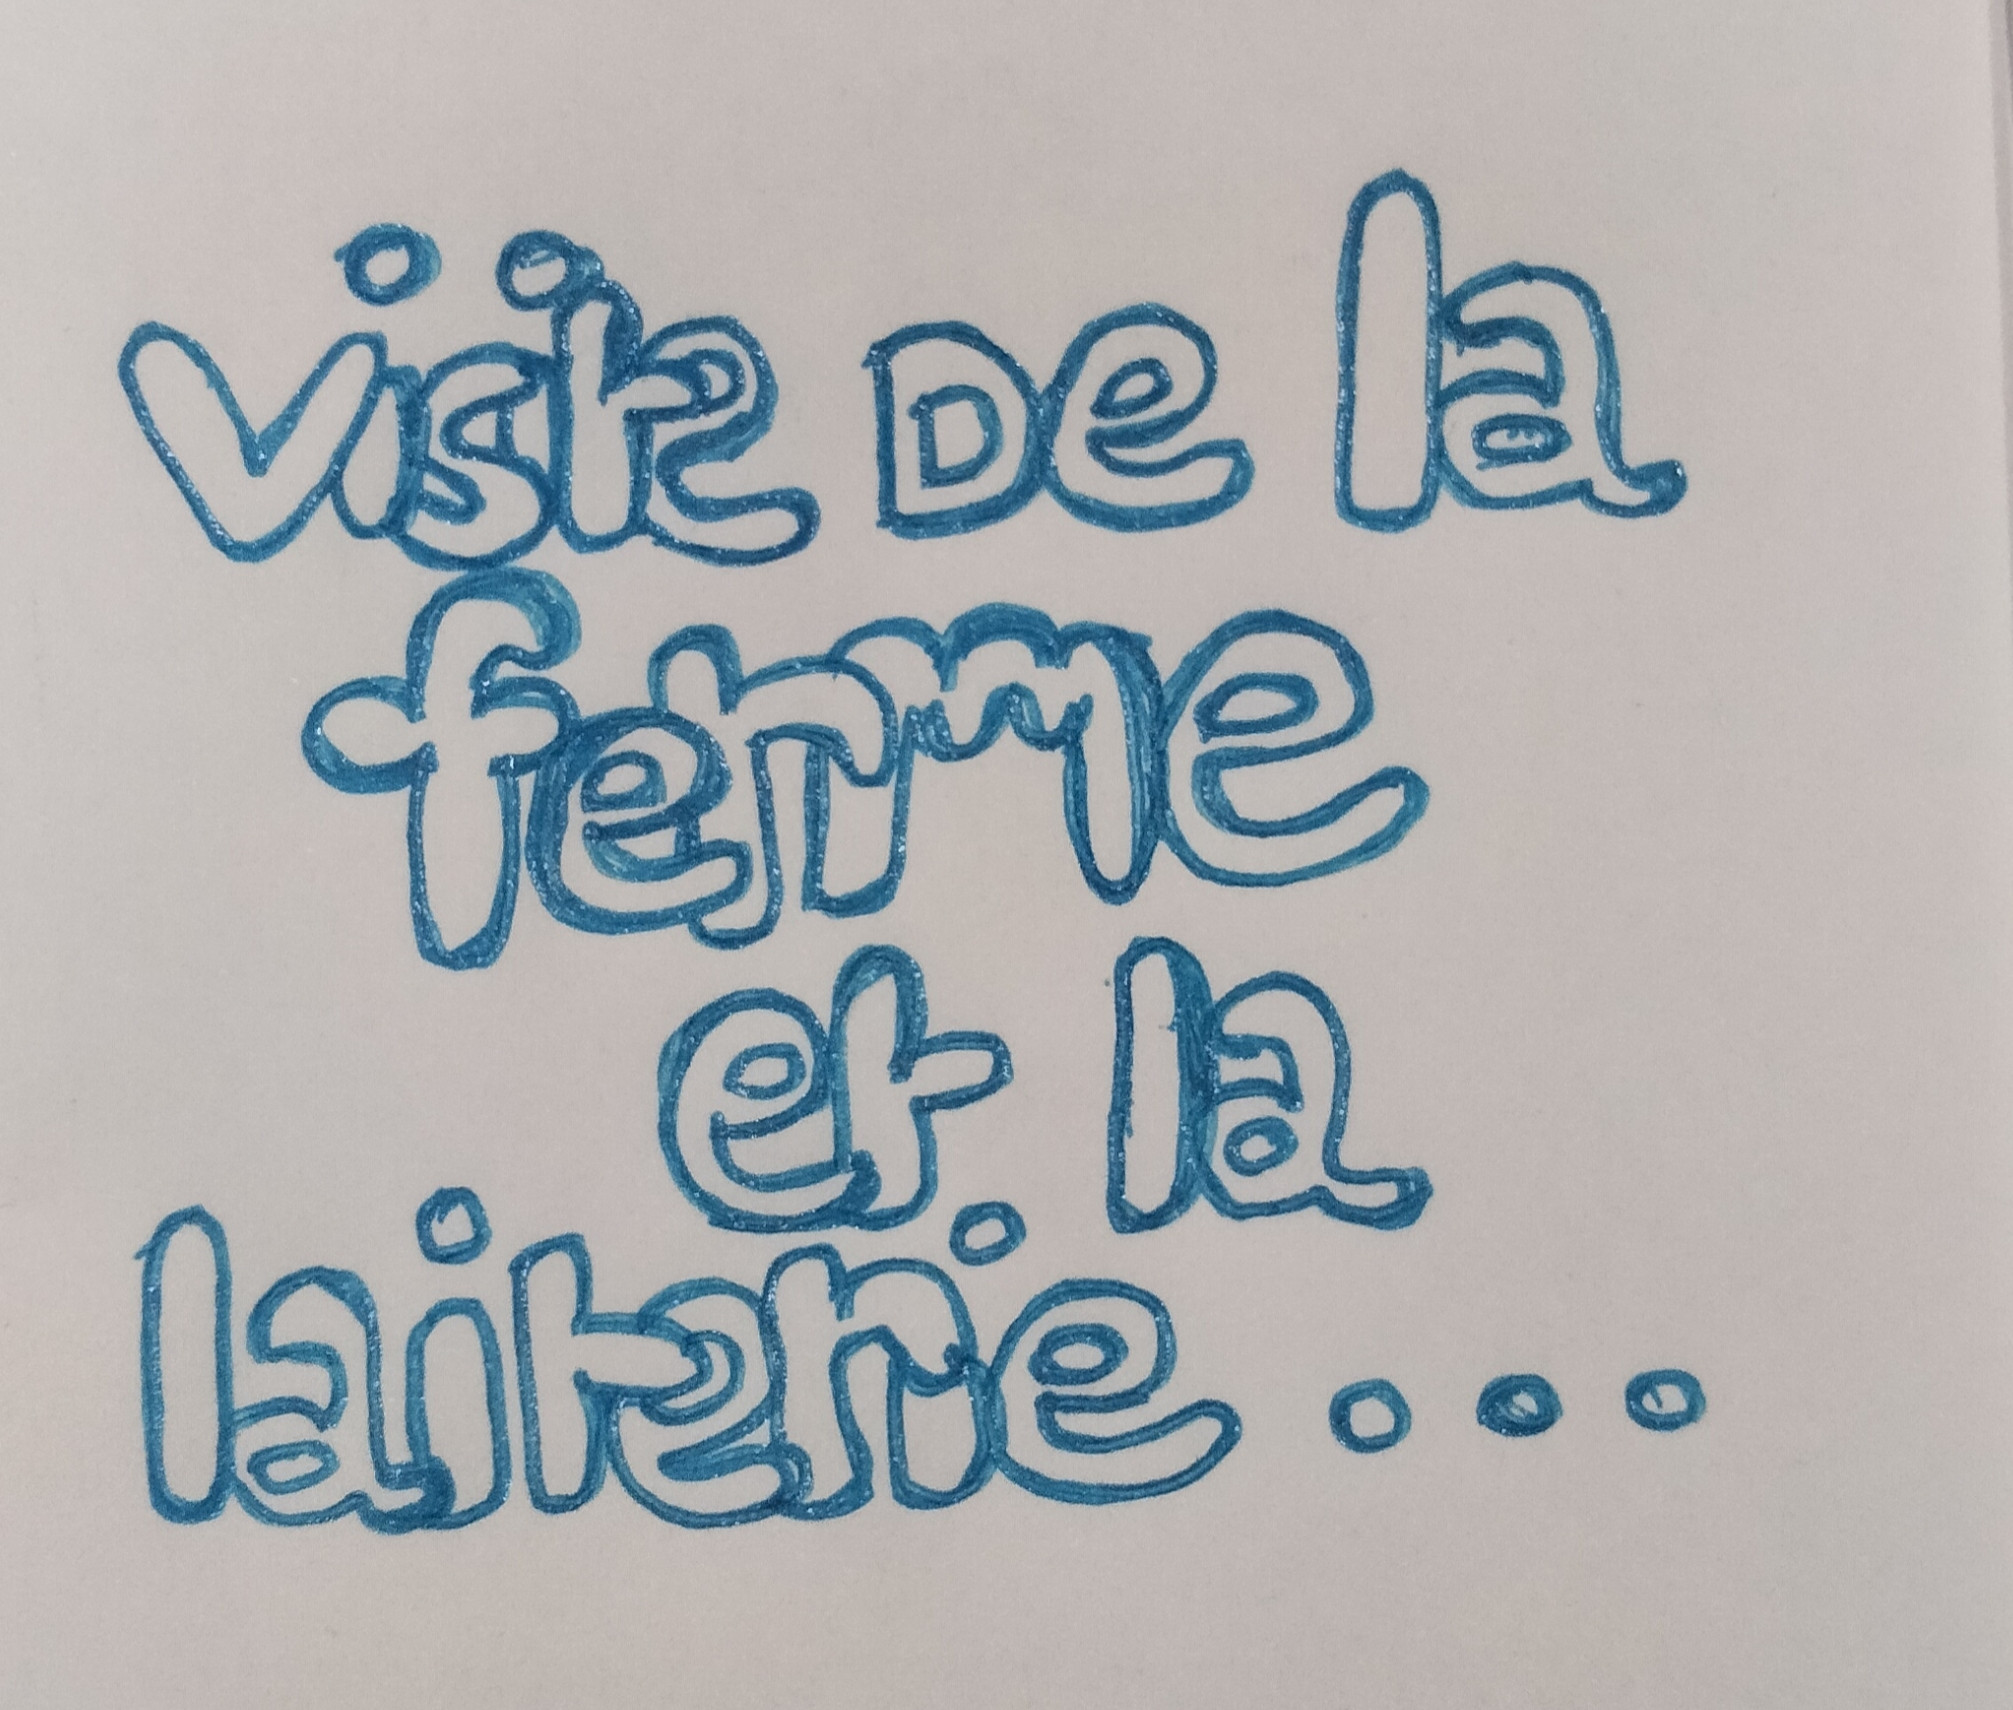 visite De la
ferme
et la
laiterie...